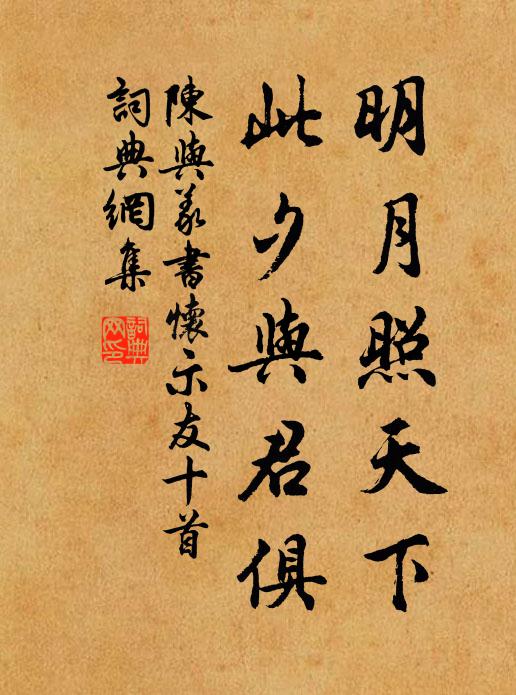 明月照天下
此夕與君俱
陳與義書懷示友十首
詞典網集
詞典網印